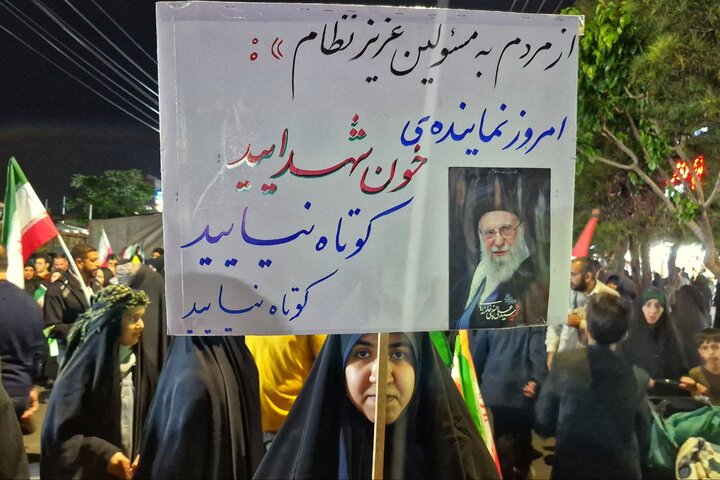 از مردم به مسئولین عزیز نظام «:
امروز نماینده‌ی
خون شهدایید
کوتاه نیایید
کوتاه نیایید